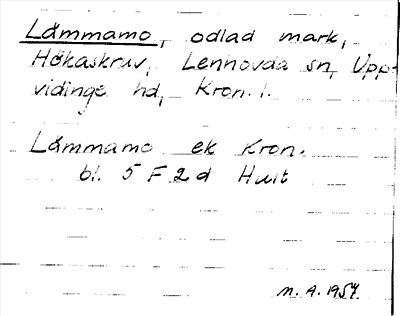 Lämmamo, odlad mark,
Hökaskruv, Lenhovda sn, Upp-
vidinge hd, Kron. l.
Lämmamo ek Kron.
bl. 5 F 2 d Hult
M. A. 1954.